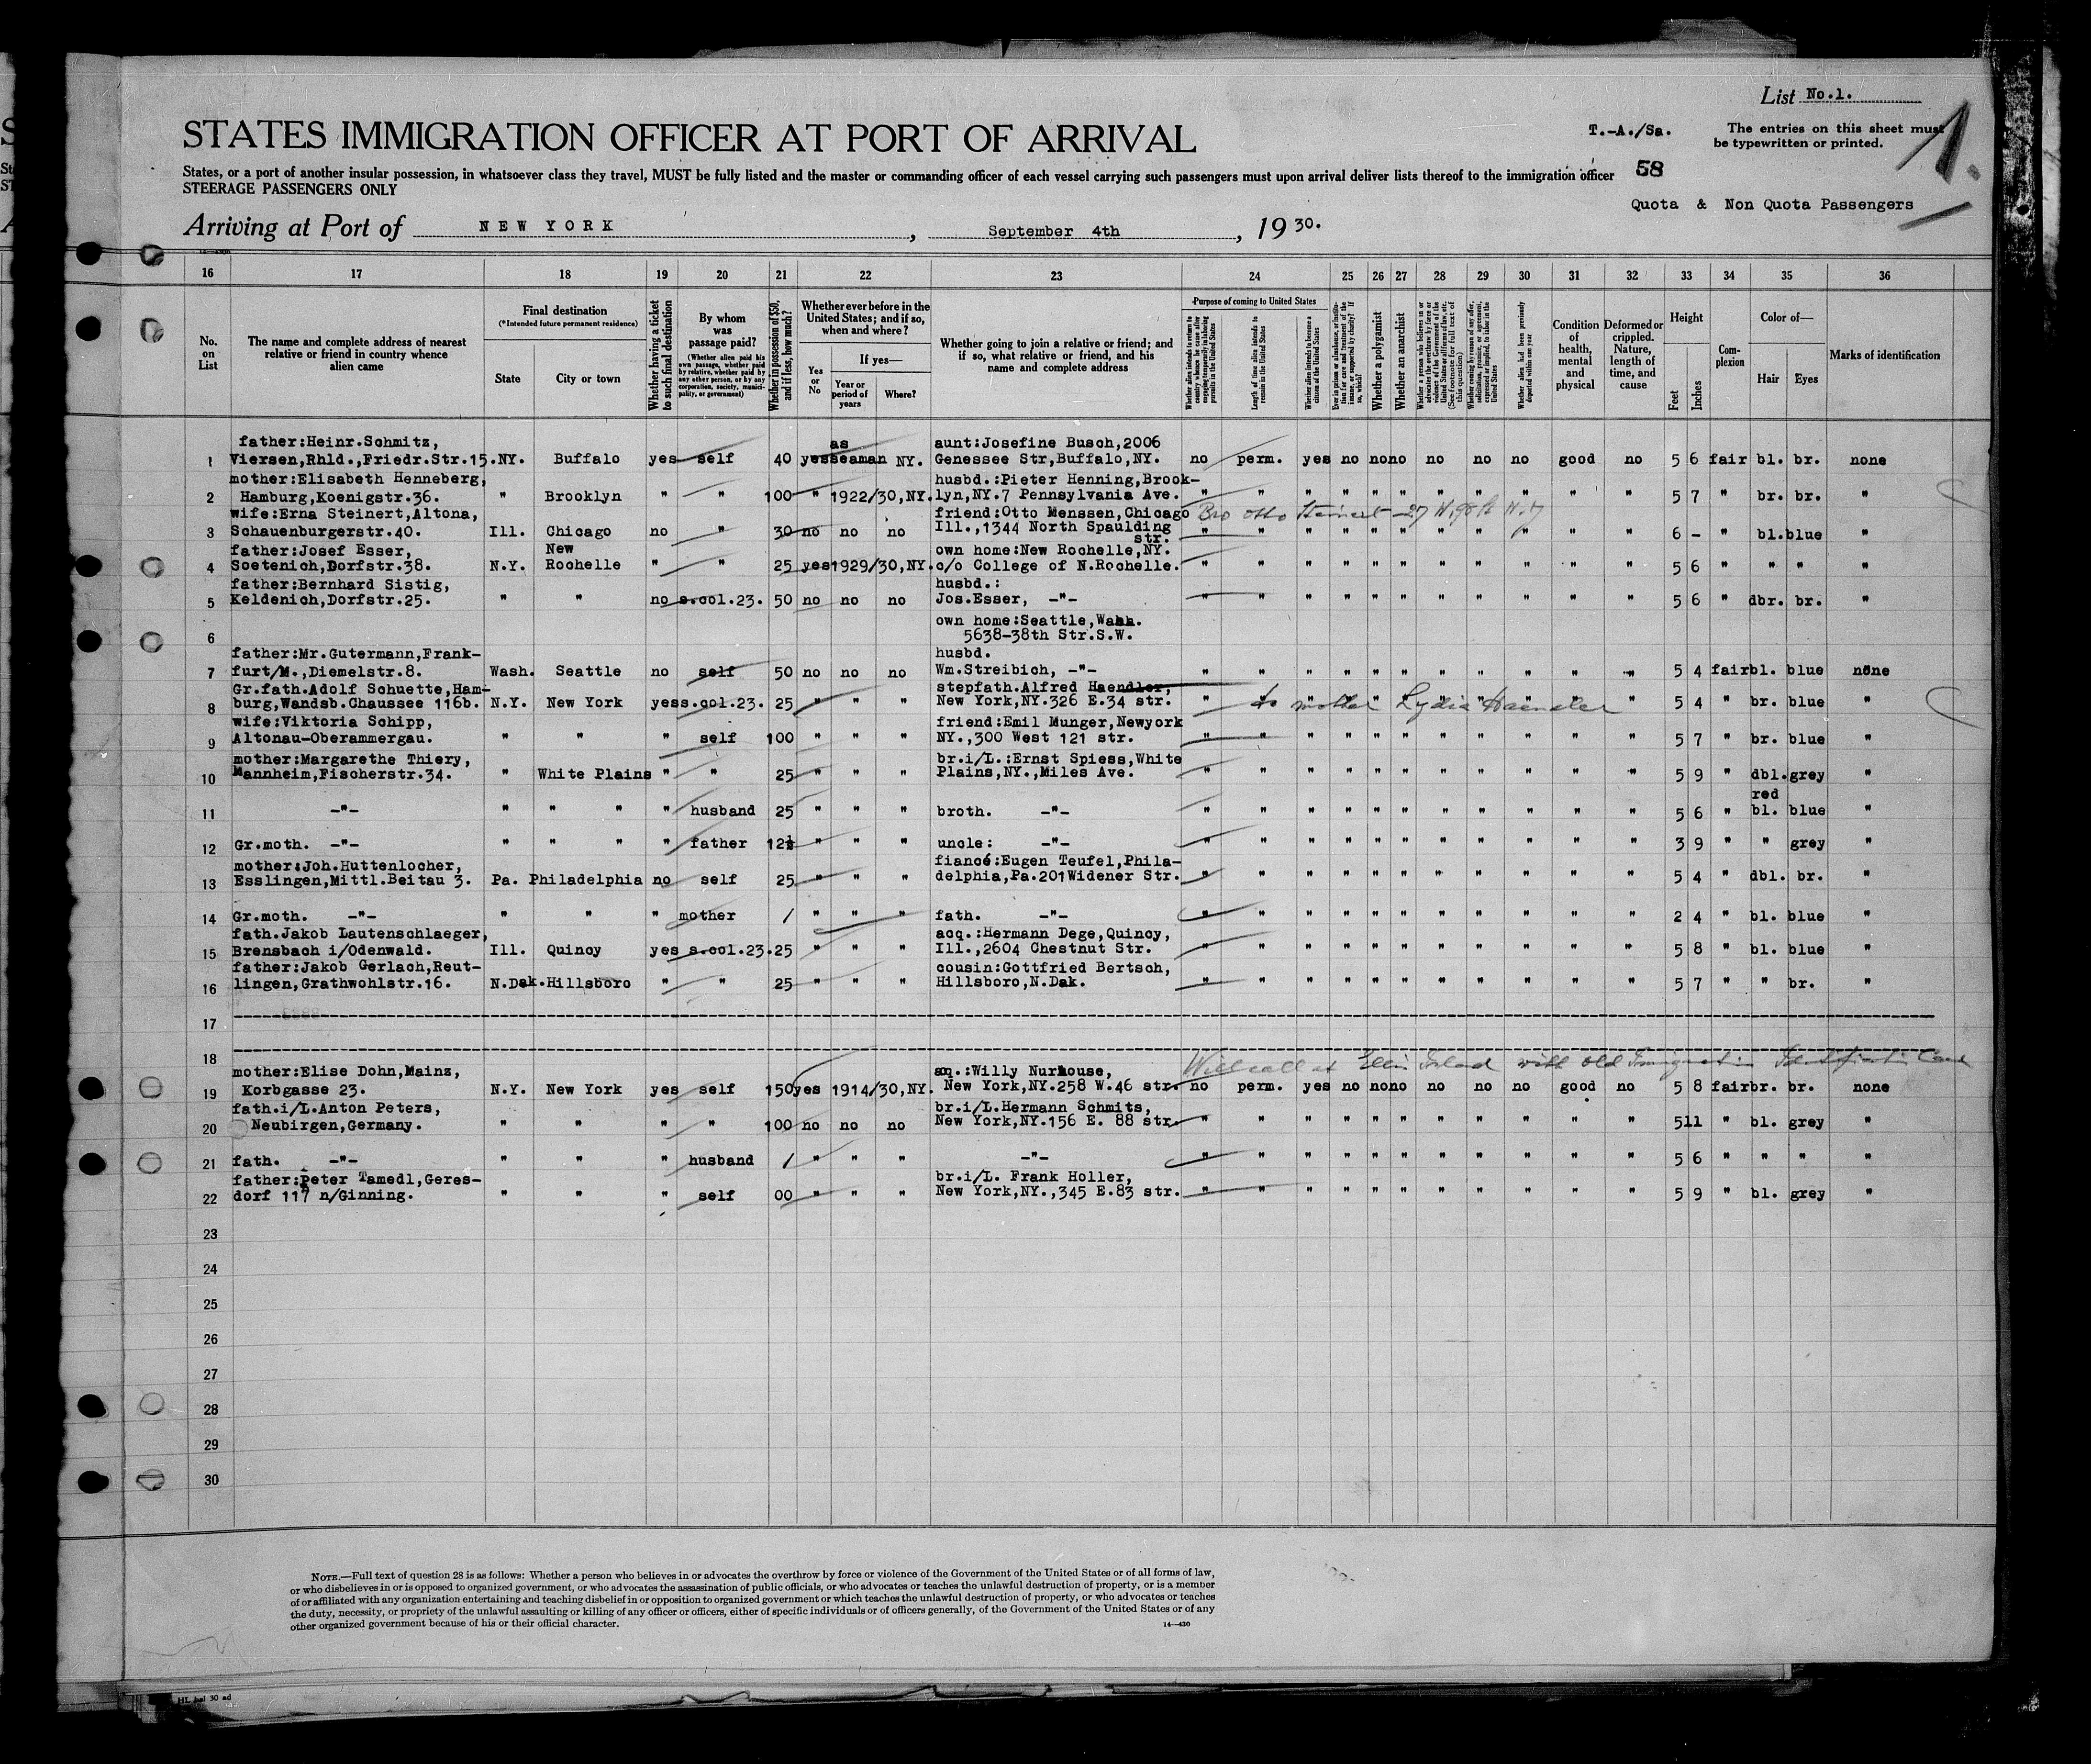 List No.1.
STATES IMMIGRATION OFFICER AT PORT OF ARRIVAL
T.-A./Sa.
The entries on this sheet must
be typewritten or printed.
1.
States, or a port of another insular possession, in whatsoever class they travel, MUST be fully listed and the master or commanding officer of each vessel carrying such passengers must upon arrival deliver lists thereof to the immigration officer
58
STEERAGE PASSENGERS ONLY
Quota & Non Quota Passengers
Arriving at Port of NEW YORK, September 4th, 1930.
16 17 18 19 20 21 22 23 24 25 26 27 28 29 30 31 32 33 34 35 36
No. on List
The name and complete address of nearest relative or friend in country whence alien came
Final destination
(*Intended future permanent residence)
State
City or town
Whether having a ticket to such final destination
By whom was passage paid?
(Whether alien paid his own passage, whether paid by relative, whether paid by any other person, or by any corporation, society, municipality, or government)
Whether in possession of $50, and if less, how much?
Whether ever before in the United States; and if so, when and where?
Yes or No
If yes—
Year or period of years
Where?
Whether going to join a relative or friend; and if so, what relative or friend, and his name and complete address
Purpose of coming to United States
Length of time alien intends to remain in the United States
Whether alien intends to become a citizen of the United States
Whether a polygamist
Whether an anarchist
Condition of health, mental and physical
Deformed or crippled. Nature, length of time, and cause
Height
Feet
Inches
Complexion
Color of—
Hair
Eyes
Marks of identification
father:Heinr.Schmitz, as aunt:Josefine Busch,2006
1 Viersen,Rhld.,Friedr.Str.15. NY. Buffalo yes self 40 yes seaman NY. Genessee Str,Buffalo,NY. no perm. yes no no no no no no good no 5 6 fair bl. br. none
mother:Elisabeth Henneberg, husbd.:Pieter Henning,Brook-
2 Hamburg,Koenigstr.36. " Brooklyn " " 100 " 1922/30,NY. lyn,NY.7 Pennsylvania Ave. " " " " " " " " " " " 5 7 " br. br. "
wife:Erna Steinert,Altona, friend:Otto Menssen,Chicago Bro Otto Steinert
3 Schauenburgerstr.40. Ill. Chicago no " 30 no no no Ill.,1344 North Spaulding str. " " " " " " " " " " " 6 - " bl. blue "
father:Josef Esser, New own home:New Rochelle,NY.
4 Soetenich,Dorfstr.38. N.Y. Rochelle " " 25 yes 1929/30,NY. c/o College of N.Rochelle. " " " " " " " " " " " 5 6 " " " "
father:Bernhard Sistig, husbd.:
5 Keldenich,Dorfstr.25. " " no s.col.23. 50 no no no Jos.Esser, -"- " " " " " " " " " " " 5 6 " dbr. br. "
own home:Seattle,Wash.
6 5638-38th Str.S.W.
father:Mr.Gutermann,Frank- husbd.
7 furt/M.,Diemelstr.8. Wash. Seattle no self 50 no no no Wm.Streibich, -"- " " " " " " " " " " " 5 4 fair bl. blue none
Gr.fath.Adolf Schuette,Ham- stepfath.Alfred Haendler,
8 burg,Wandsb.Chaussee 116b. N.Y. New York yes s.col.23. 25 " " " New York,NY.326 E.34 str. to mother Lydia Haendler " 5 4 " br. blue "
wife:Viktoria Schipp, friend:Emil Munger,Newyork
9 Altonau-Oberammergau. " " " self 100 " " " NY.,300 West 121 str. " " " " " " " " " " " 5 7 " br. blue "
mother:Margarethe Thiery, br.i/L.:Ernst Spiess,White
10 Mannheim,Fischerstr.34. " White Plains " " 25 " " " Plains,NY.,Miles Ave. " " " " " " " " " " " 5 9 " dbl. grey "
red
11 -"- " " " " husband 25 " " " broth. -"- " " " " " " " " " " " 5 6 " bl. blue "
12 Gr.moth. -"- " " " " father 12½ " " " uncle: -"- " " " " " " " " " " " 3 9 " " grey "
mother:Joh.Huttenlocher, fiancé:Eugen Teufel,Phila-
13 Esslingen,Mittl.Beitau 3. Pa. Philadelphia no self 25 " " " delphia,Pa.201 Widener Str. " " " " " " " " " " " 5 4 " dbl. br. "
14 Gr.moth. -"- " " " mother / " " " fath. -"- " " " " " " " " " " " 2 4 " bl. blue "
fath.Jakob Lautenschlaeger, acq.:Hermann Dege,Quincy,
15 Brensbach i/Odenwald. Ill. Quincy yes s.col.23. 25 " " " Ill.,2604 Chestnut Str. " " " " " " " " " " " 5 8 " bl. blue "
father:Jakob Gerlach,Reut- cousin:Gottfried Bertsch,
16 lingen,Grathwohlstr.16. N.Dak. Hillsboro " " 25 " " " Hillsboro,N.Dak. " " " " " " " " " " " 5 7 " " br. "
17
18 Will call at Ellis Island with old Immigration Identification Card
mother:Elise Dohn,Mainz, aq.:Willy Nurhouse,
19 Korbgasse 23. N.Y. New York yes self 150 yes 1914/30,NY. New York,NY.258 W.46 str. no perm. yes no no no no no no good no 5 8 fair br. br. none
fath.i/L.Anton Peters, br.i/L.Hermann Schmits,
20 Neubirgen,Germany. " " " " 100 no no no New York,NY.156 E. 88 str. " " " " " " " " " " " 5 11 " bl. grey "
21 fath. -"- " " " husband / " " " -"- " " " " " " " " " " " 5 6 " " " "
father:Peter Tamedl,Geres- br.i/L. Frank Holler,
22 dorf 117 n/Ginning. " " " self 00 " " " New York,NY.,345 E.83 str. " " " " " " " " " " " 5 9 " bl. grey "
23
24
25
26
27
28
29
30
NOTE.—Full text of question 28 is as follows: Whether a person who believes in or advocates the overthrow by force or violence of the Government of the United States or of all forms of law,
or who disbelieves in or is opposed to organized government, or who advocates the assassination of public officials, or who advocates or teaches the unlawful destruction of property, or is a member
of or affiliated with any organization entertaining and teaching disbelief in or opposition to organized government or which teaches the unlawful destruction of property, or who advocates or teaches
the duty, necessity, or propriety of the unlawful assaulting or killing of any officer or officers, either of specific individuals or of officers generally, of the Government of the United States or of any
other organized government because of his or their official character.
14—430